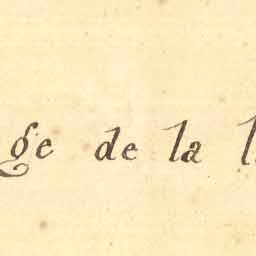 ge de la l